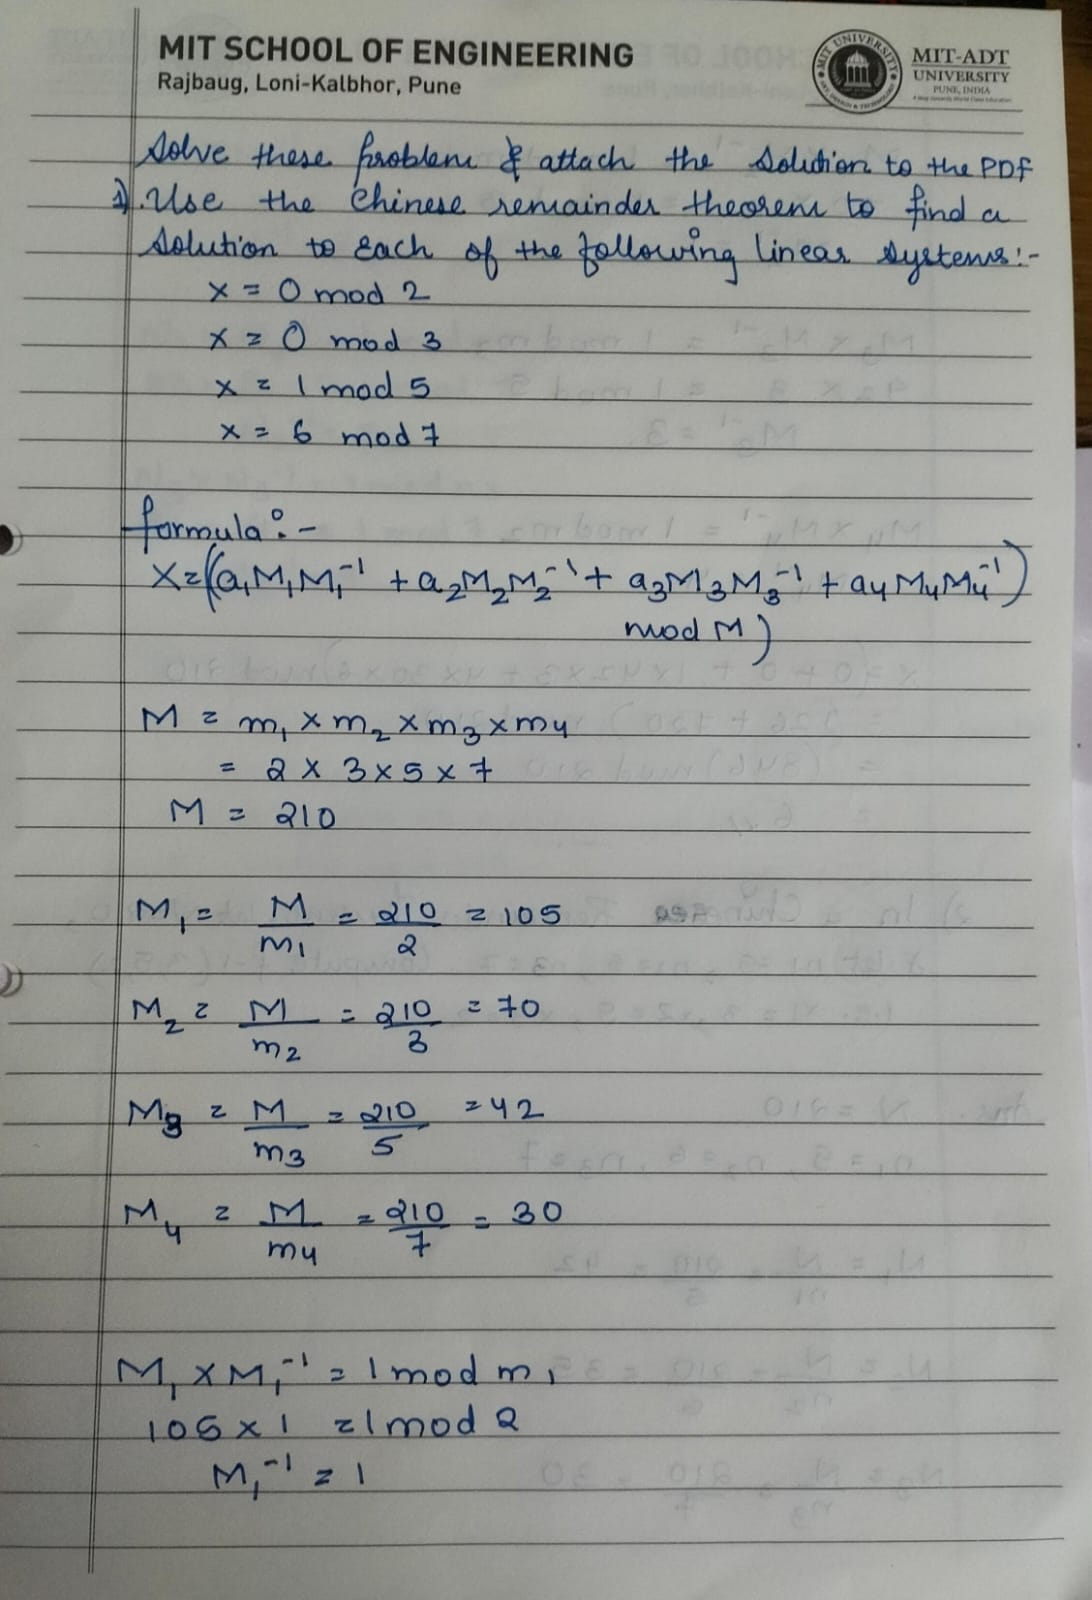 MIT SCHOOL OF ENGINEERING
Rajbaug, Loni-Kalbhor, Pune
MIT UNIVERSITY
MIT-ADT
UNIVERSITY
PUNE, INDIA
Solve these problem & attach the solution to the PDF
1). Use the Chinese remainder theorem to find a
solution to each of the following linear systems:-
x = 0 mod 2
x = 0 mod 3
x = 1 mod 5
x = 6 mod 7
formula:-
X=((a₁M₁M₁⁻¹ + a₂M₂M₂⁻¹ + a₃M₃M₃⁻¹ + a₄M₄M₄⁻¹)
mod M)
M = m₁ × m₂ × m₃ × m₄
= 2 × 3 × 5 × 7
M = 210
M₁ = M/m₁ = 210/2 = 105
M₂ = M/m₂ = 210/3 = 70
M₃ = M/m₃ = 210/5 = 42
M₄ = M/m₄ = 210/7 = 30
M₁ × M₁⁻¹ = 1 mod m₁
105 × 1 = 1 mod 2
M₁⁻¹ = 1